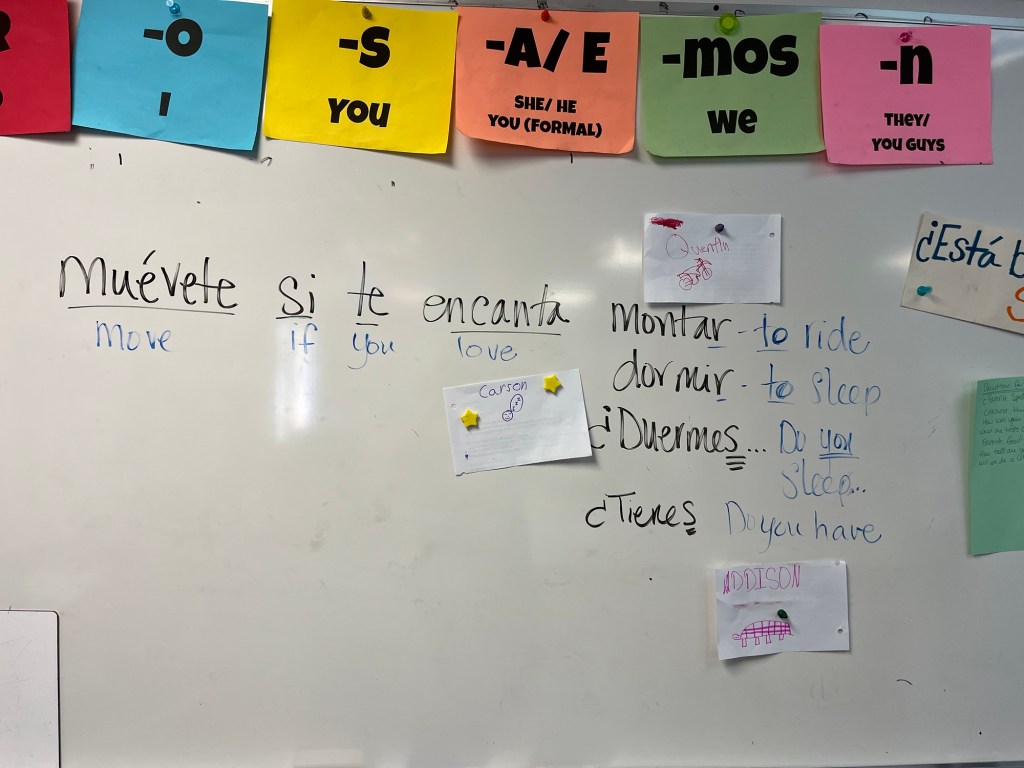 R
-O
I
-S
YOU
-A/ E
SHE/ HE
YOU (FORMAL)
-mos
we
-n
THEY/
YOU GUYS
Quentin
¿Está
Muévete si te encanta montar - to ride
move if you love
dormir - to sleep
Carson
¿Duermes... Do you
sleep...
¿Tienes Do you have
ADDISON